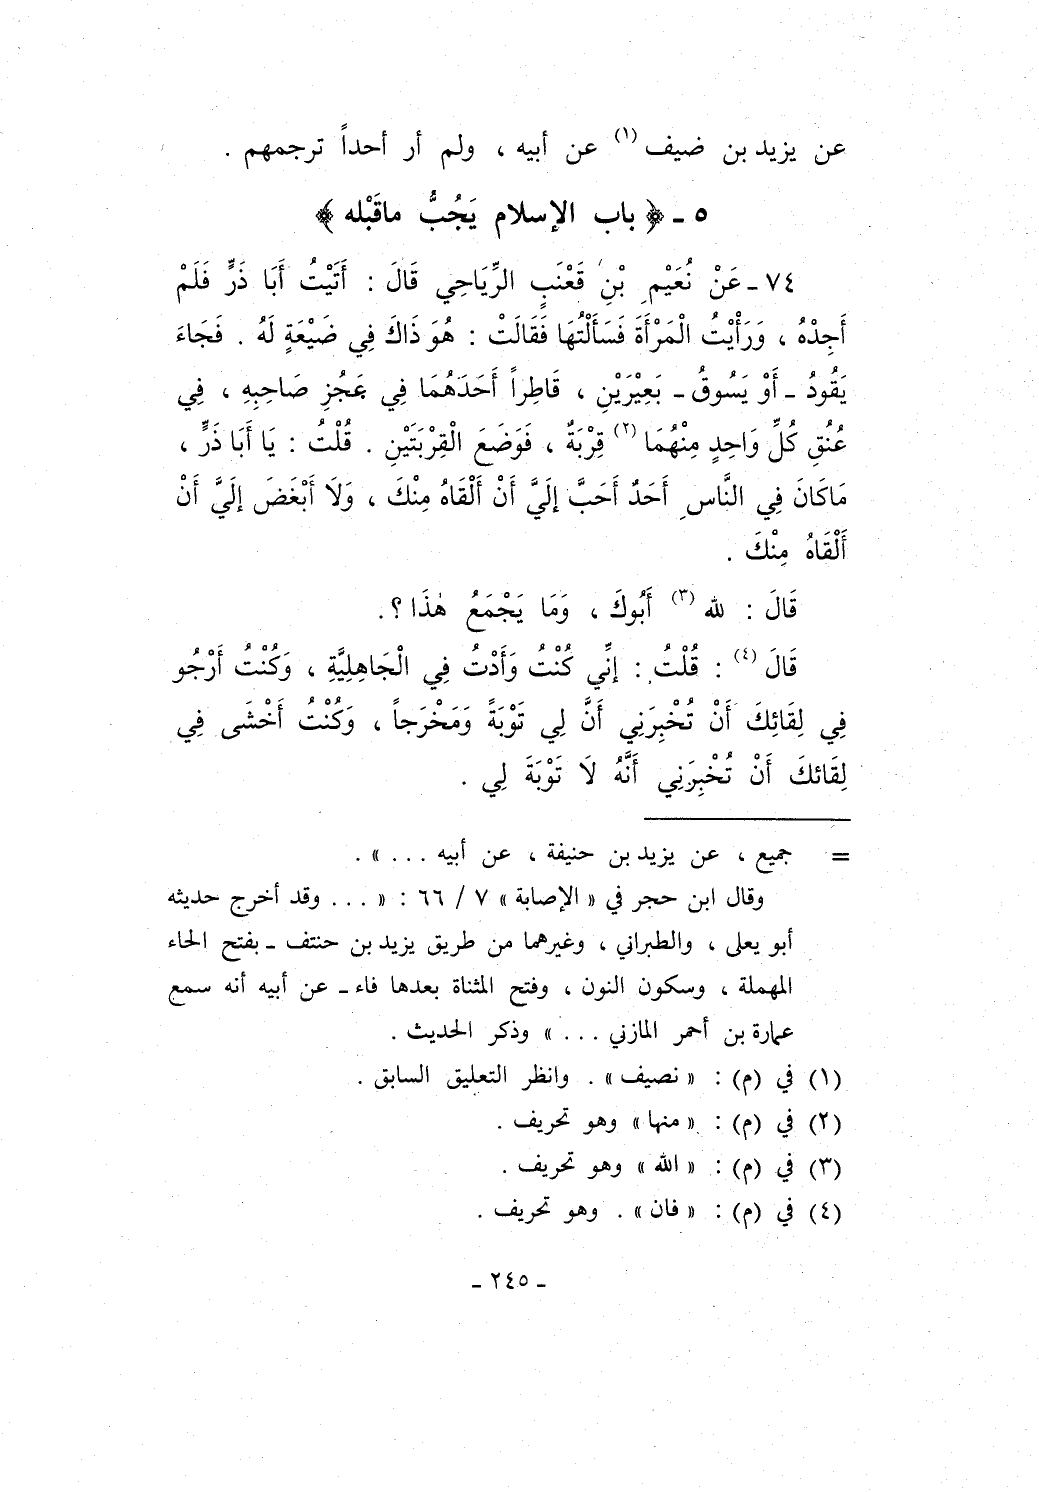 عن يزيد بن ضيف(١) عن أبيه ، ولم أر أحداً ترجمهم .
٥ - ﴿ باب الإسلام يَجُبُّ ماقَبْله ﴾
٧٤ - عَنْ نُعَيْمِ بْنِ قَعْنَبٍ الرِّيَاحِي قَالَ : أَتَيْتُ أَبَا ذَرٍّ فَلَمْ
أَجِدْهُ ، وَرَأَيْتُ الْمَرْأَةَ فَسَأَلْتُهَا فَقَالَتْ : هُوَ ذَاكَ فِي ضَيْعَةٍ لَهُ . فَجَاءَ
يَقُودُ - أَوْ يَسُوقُ - بَعِيْرَيْنِ ، قَاطِراً أَحَدَهُمَا فِي عَجُزِ صَاحِبِهِ ، فِي
عُنُقِ كُلِّ وَاحِدٍ مِنْهُمَا(٢) قِرْبَةٌ ، فَوَضَعَ الْقِرْبَتَيْنِ . قُلْتُ : يَا أَبَا ذَرٍّ ،
مَاكَانَ فِي النَّاسِ أَحَدٌ أَحَبَّ إلَيَّ أَنْ أَلْقَاهُ مِنْكَ ، وَلَا أَبْغَضَ إلَيَّ أَنْ
أَلْقَاهُ مِنْكَ .
قَالَ : لله(٣) أَبُوكَ ، وَمَا يَجْمَعُ هٰذَا ؟.
قَالَ(٤) : قُلْتُ : إنِّي كُنْتُ وَأَدْتُ فِي الْجَاهِلِيَّةِ ، وَكُنْتُ أَرْجُو
فِي لِقَائِكَ أَنْ تُخْبِرَنِي أَنَّ لِي تَوْبَةً وَمَخْرَجاً ، وَكُنْتُ أَخْشَى فِي
لِقَائكَ أَنْ تُخْبِرَنِي أَنَّهُ لَا تَوْبَةَ لِي .
= جميع ، عن يزيد بن حنيفة ، عن أبيه ... » .
وقال ابن حجر في « الإصابة » ٧ / ٦٦ : « ... وقد أخرج حديثه
أبو يعلى ، والطبراني ، وغيرهما من طريق يزيد بن حنتف - بفتح الحاء
المهملة ، وسكون النون ، وفتح المثناة بعدها فاء - عن أبيه أنه سمع
عمارة بن أحمر المازني ... » وذكر الحديث .
(١) في (م) : « نصيف » . وانظر التعليق السابق .
(٢) في (م) : « منها » وهو تحريف .
(٣) في (م) : « الله » وهو تحريف .
(٤) في (م) : « فان » . وهو تحريف .
- ٢٤٥ -